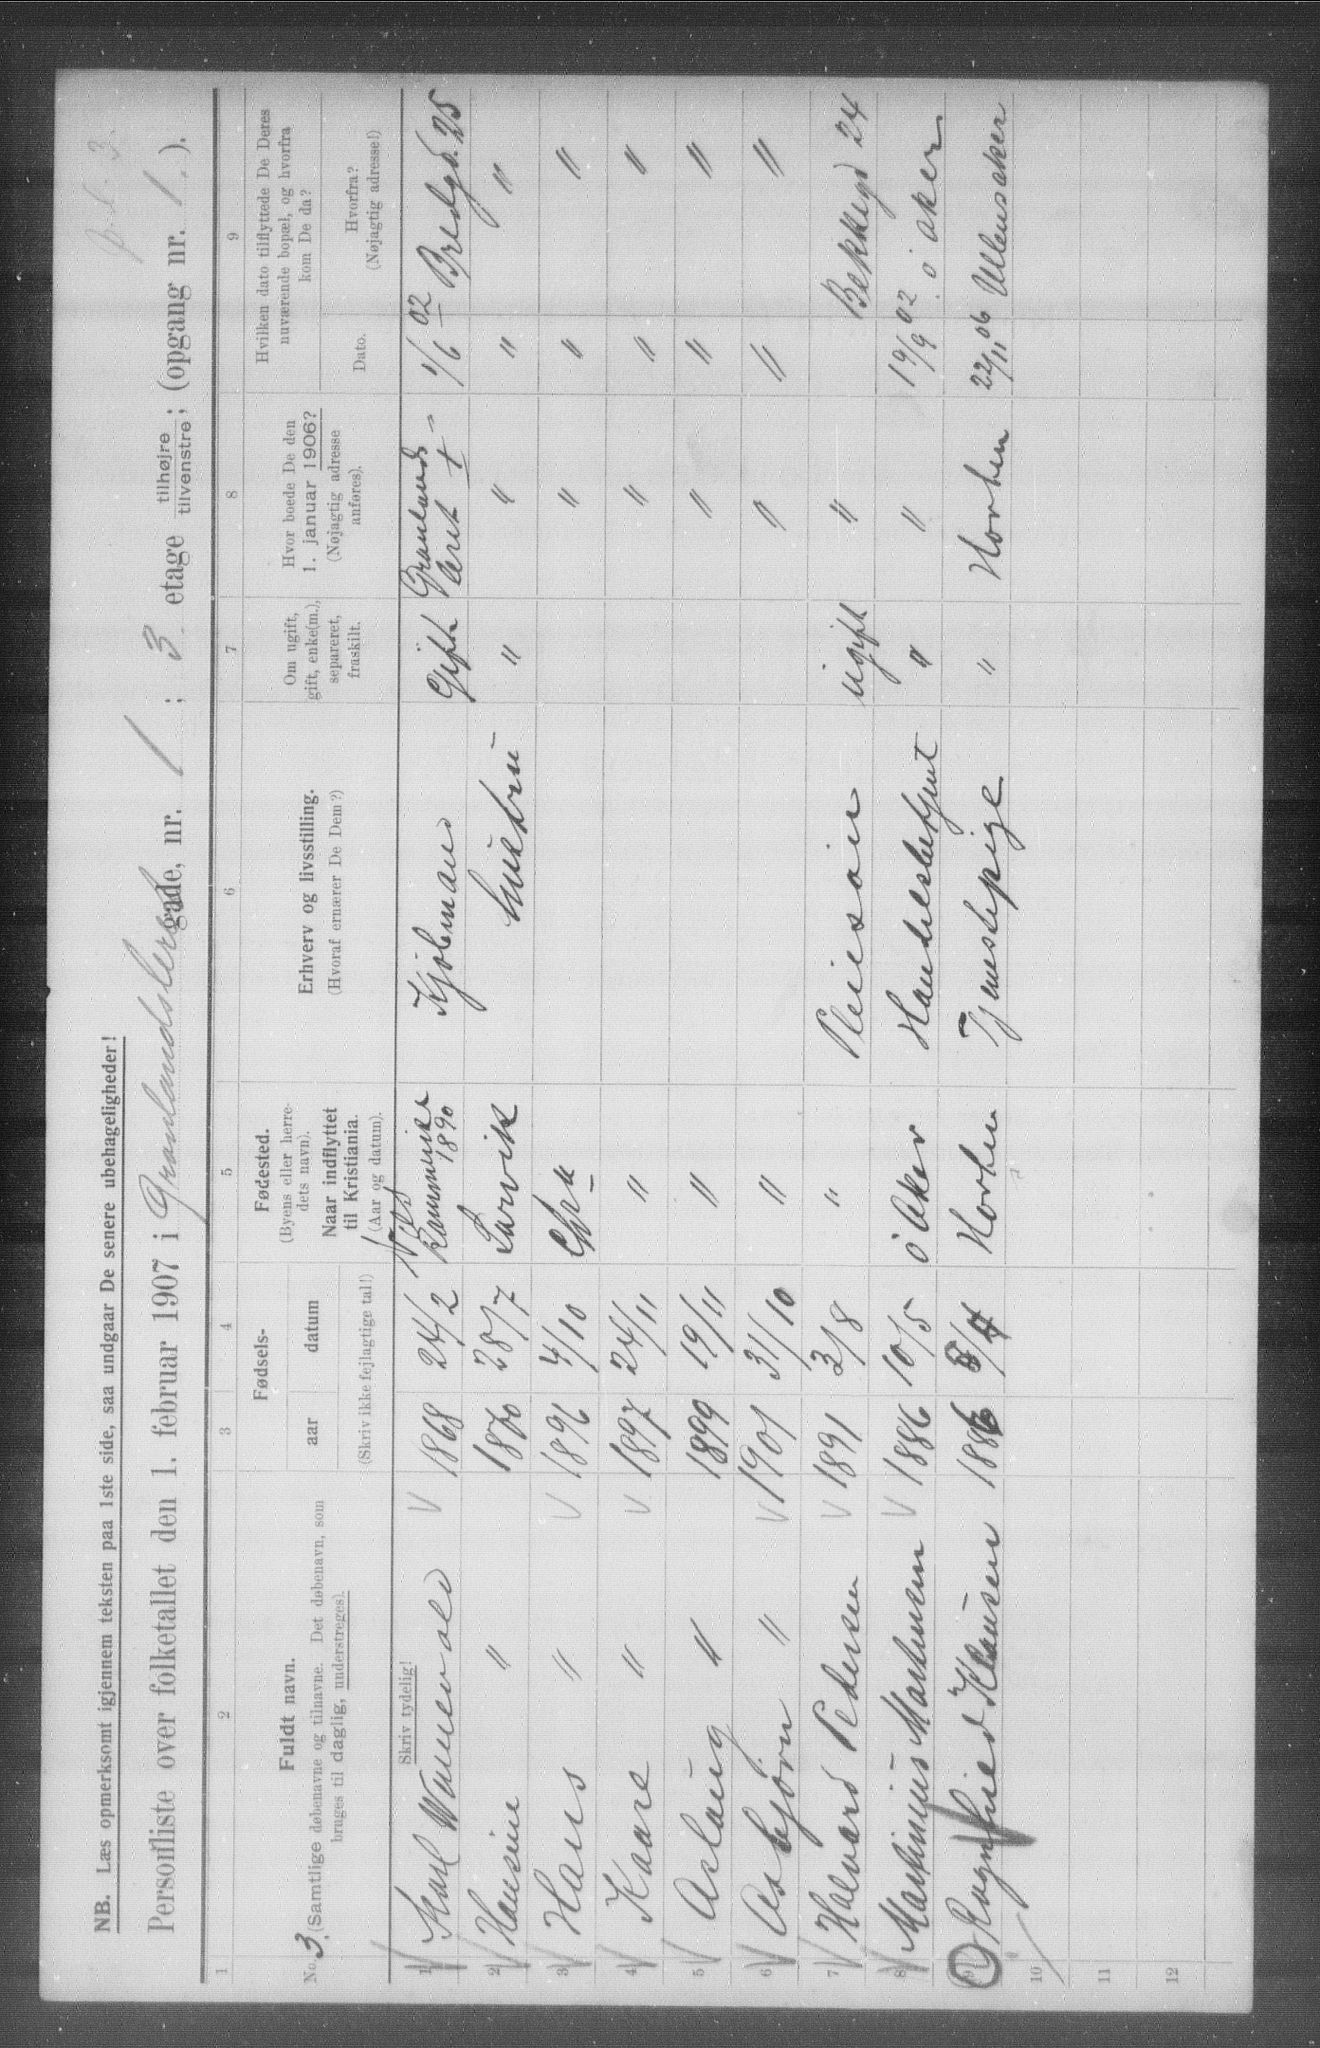 p. l. 3.
NB. Læs opmerksomt igjennem teksten paa 1ste side, saa undgaar De senere ubehageligheder!
Personliste over folketallet den 1. februar 1907 i Grønlandsleret gade, nr. 1 ; 3. etage tilhøjre / tilvenstre; (opgang nr. 1.).
1 2 3 4 5 6 7 8 9
No. 3.
Fuldt navn.
(Samtlige døbenavne og tilnavne. Det døbenavn, som bruges til daglig, understreges).
Fødsels-
aar datum
(Skriv ikke fejlagtige tal!)
Fødested.
(Byens eller herredets navn).
Naar indflyttet til Kristiania.
(Aar og datum).
Erhverv og livsstilling.
(Hvoraf ernærer De Dem?)
Om ugift, gift, enke(m.), separeret, fraskilt.
Hvor boede De den 1. januar 1906?
(Nøjagtig adresse anføres).
Hvilken dato tilflyttede De Deres nuværende bopæl, og hvorfra kom De da?
Dato.
Hvorfra?
(Nøjagtig adresse!)
Skriv tydelig!
1 Karl 1868 24/2 1890 Kjøbmand Gift Grønlands leret 1 1/6 02 Bredgd. 25
2 Hansine " 1870 28/7 Larvik hustru " " " "
3 Hans " 1896 4/10 Chra " " "
4 Kaare " 1897 24/11 " " " "
5 Aslaug " 1899 19/11 " " " "
6 Asbjørn " 1901 31/10 " " " "
7 Halvard Pedersen 1891 3/8 " ugift " Bekkegd 24
8 Martinius Martinsen 1886 10/5 Ø Aker Handelsbetjent " " 19/9 02 Ø aker
9 Ragnhild 188 Horten Tjenestepige " Horten 22/11 06 Ullensaker
10
11
12